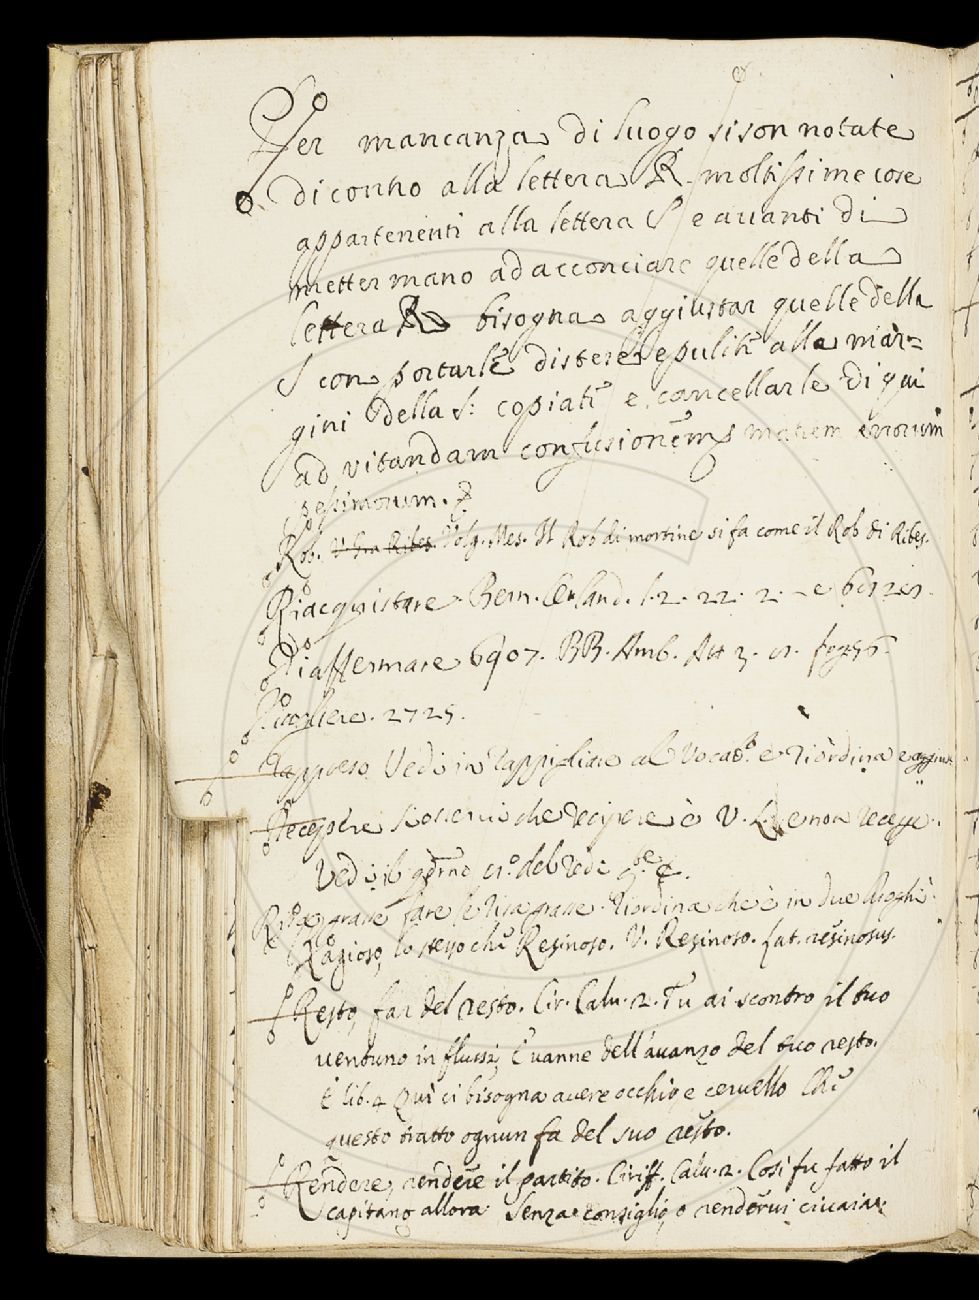 Per mancanza di luogo si son notate
di contro alla lettera R. moltissime cose
appartenenti alla lettera S e avanti di
metter mano ad acconciare quelle della
lettera R bisogna aggiustar quelle della
S con portarle distese e pulite alla mar=
gini della S: copiati e cancellarle di qui
ad vitandam confusionem matrem errorum
pessimorum.
Rob. Volg. Mes. Il Rob di mortine si fa come il Rob di Ribes.
Riacquistare. Bern. Orland. 1. 2. 22. 2. e
Riaffermare 6907. BB. Amb. Att 3.
2725.
Rappreso Vedi in rappigliare al Vocab. e riordina e
Recepere si osservi che recipere è V. L. e non recepe.
Vedi il del Redi
grasse fare le riordina che è in due luoghi.
Ragioso, lo stesso che Resinoso. V. Resinoso. Lat. resinosus.
Resto, far del resto. Cir. Calv. 2. Tu ai scontro il tuo
ventuno in flussi, E vanne dell'avanzo del tuo resto.
E lib. 4 Qui ci bisogna avere occhio e cervello Che
questo tratto ognun fa del suo resto.
Rendere, rendere il partito. Ciriff. Calv. 2. Così fu fatto il
capitano allora Senza consiglio, o rendervi civaia.